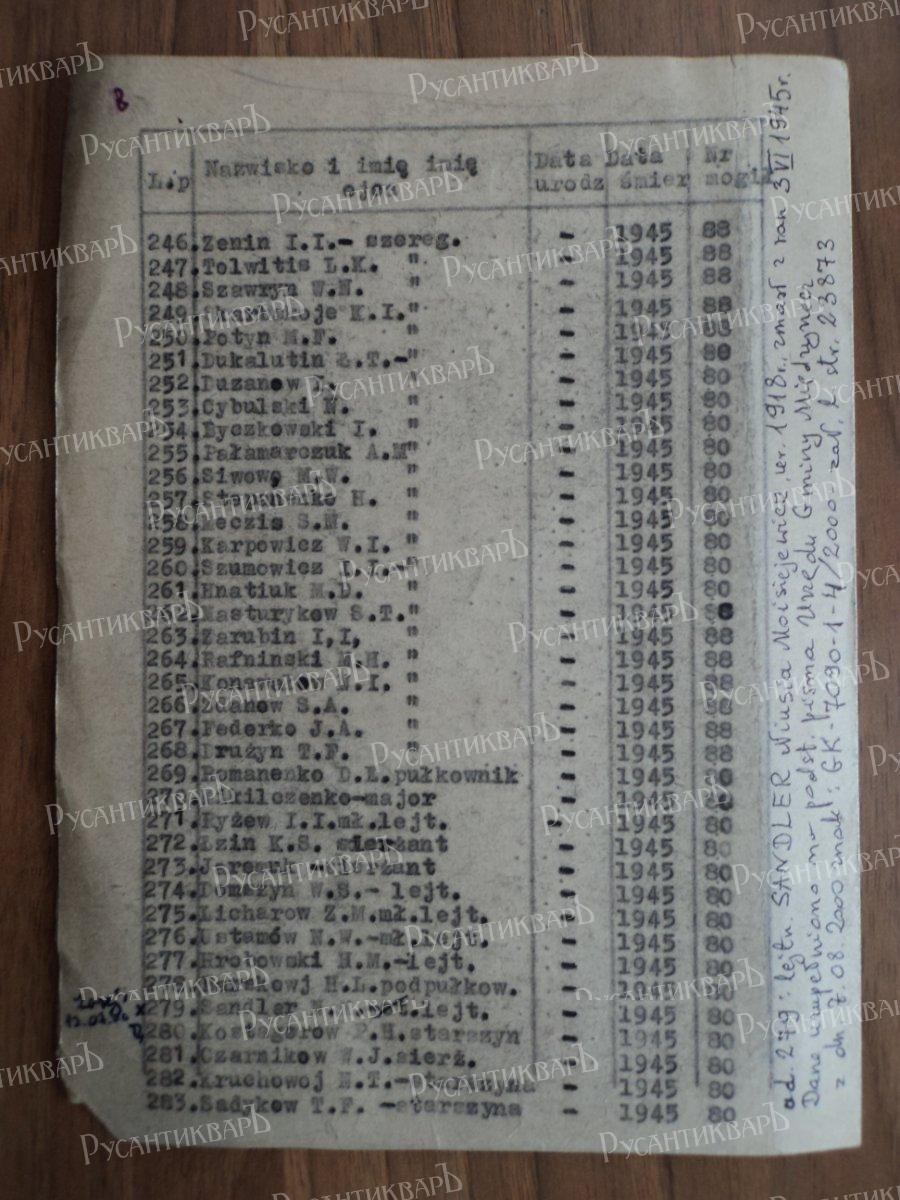 8
L.p Nazwisko i imię imię ojca Data urodz Data śmier Nr mogił
246. Zenin I.I.- szereg. - 1945 88
247. Tolwitis L.K. " - 1945 88
248. Szawryn W.N. " - 1945 88
249. K.I." - 1945 88
250. Potyn M.F. " - 1945 88
251. Dukalutin T.-" - 1945 80
252. Duzanow " - 1945 80
253. Cybulski N. " - 1945 80
254. Byczkowski I. " - 1945 80
255. Pałamarczuk A.M" - 1945 80
256. Siwowe M.W. " - 1945 80
257. Stepanenko H. " - 1945 80
258. S.N. " - 1945 80
259. Karpowicz W.I. " - 1945 80
260. Szumowicz " - 1945 80
261. Hnatiuk M.D. " - 1945 80
262. Masturykow S.T." - 1945
263. Zarubin I,I, " - 1945 88
264. Rafninski M.H. " - 1945 88
265. N.I. " - 1945 88
266. Zdanow S.A. " - 1945 88
267. Federko J.A. " - 1945 88
268. Drużyn T.F. " - 1945 88
269. Romanenko D.Ł.pułkownik - 1945 80
270. -major - 1945 80
271. Ryżew I.I.mł.lejt. - 1945 80
272. Łzin K.S. sierżant - 1945 80
273. sierżant - 1945 80
274. Domszyn W.S.- lejt. - 1945 80
275. Licharow Z.M.mł.lejt. - 1945 80
276. Ustamów N.W.-mł.lejt. - 1945 80
277. Hrobowski H.M.-lejt. - 1945 80
278. H.L.podpułkow. - 1945 80
279. Sandler lejt. - 1945 80
280. Kostogorow P.H.starszyn - 1945 80
281. Czarnikow W.J.sierż. - 1945 80
282. Kruchowoj N.T.-starszyna - 1945 80
283. Sadykow T.F. -starszyna - 1945 80
ad. 279: lejtn. SANDLER Niusia Moisiejewicz, ur. 1918 r., zmarł z ran 3 VI 1945 r.
Dane uzupełniono na podst. pisma Urzędu Gminy Międzylecz
z dn 7.08.2000 znak: GK-7090-1-4/2000 - zał. str. 23873